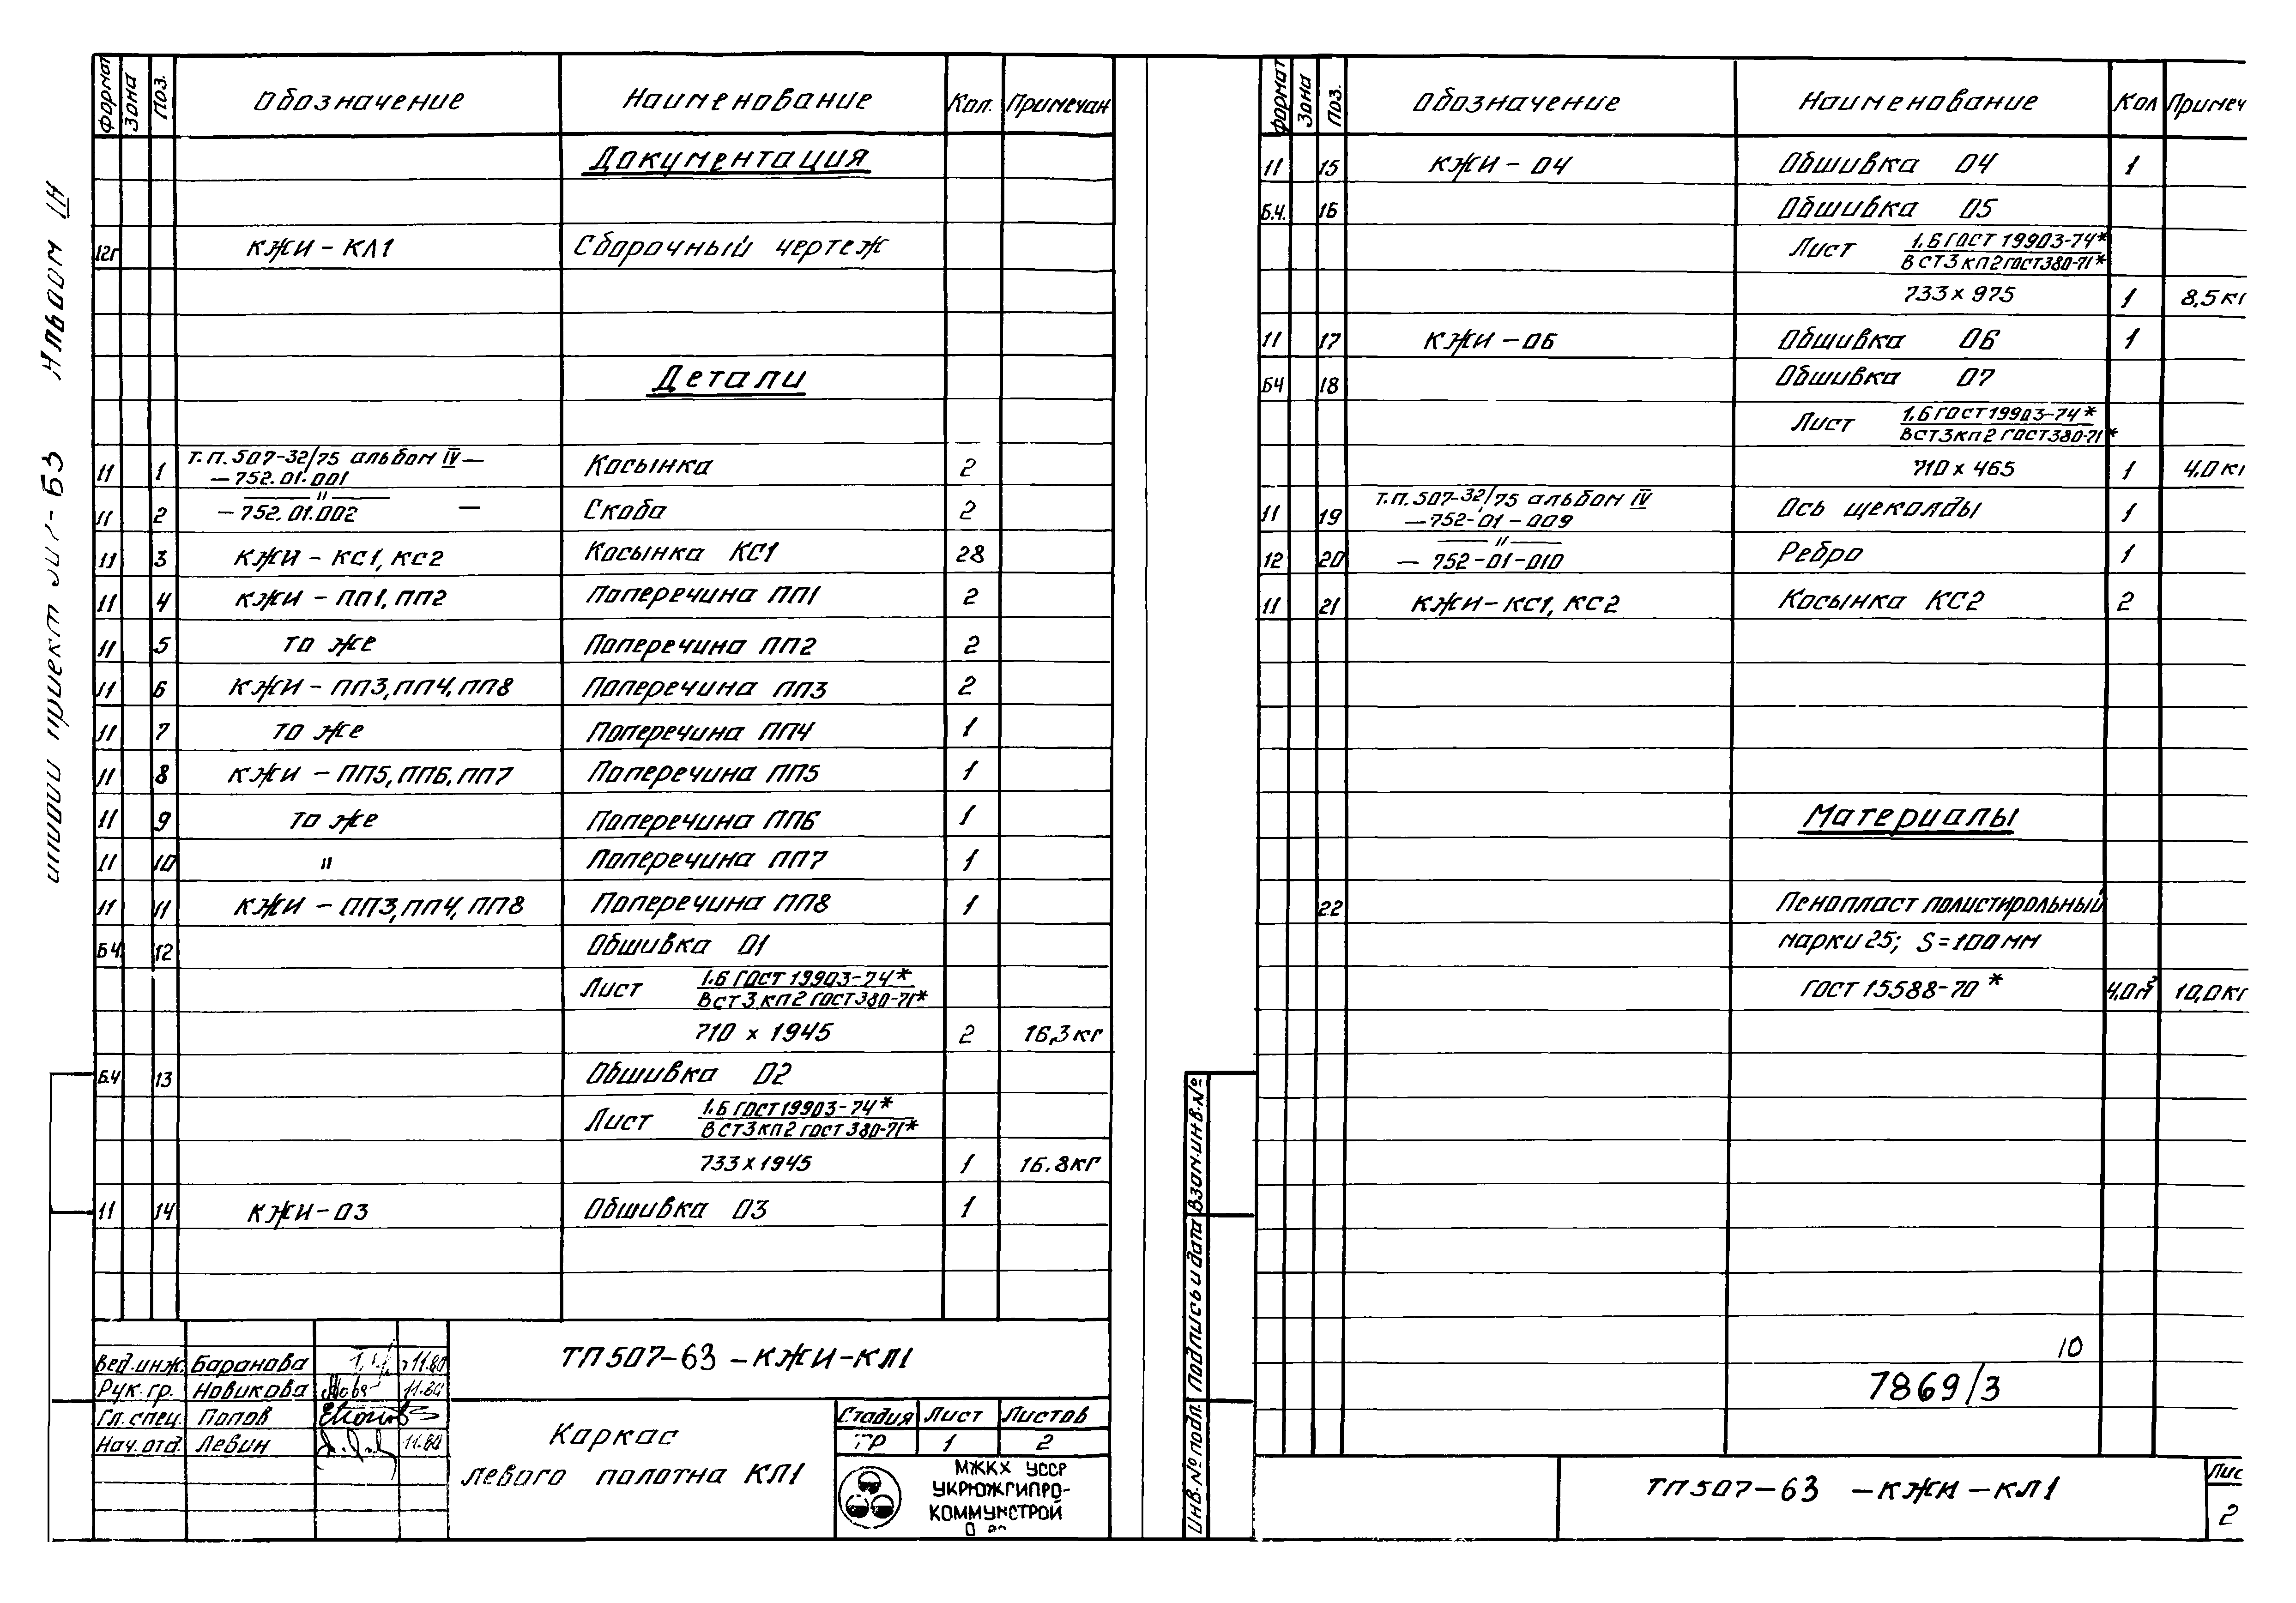 Альбом III
Типовой проект 507-63
Формат Зона Поз. Обозначение Наименование Кол. Примечан
Документация
12г КЖИ-КЛ1 Сборочный чертеж
Детали
11 1 Т.П. 507-32/75 альбом IV — Косынка 2
— 752.01.001
11 2 — " — Скоба 2
— 752.01.002 —
11 3 КЖИ - КС1, КС2 Косынка КС1 28
11 4 КЖИ - ПП1, ПП2 Поперечина ПП1 2
11 5 то же Поперечина ПП2 2
11 6 КЖИ - ПП3, ПП4, ПП8 Поперечина ПП3 2
11 7 то же Поперечина ПП4 1
11 8 КЖИ - ПП5, ПП6, ПП7 Поперечина ПП5 1
11 9 то же Поперечина ПП6 1
11 10 " Поперечина ПП7 1
11 11 КЖИ - ПП3, ПП4, ПП8 Поперечина ПП8 1
Б.Ч. 12 Обшивка 01
Лист 1.6 ГОСТ 19903-74*
В СТ3 кп2 ГОСТ 380-71*
710 x 1945 2 16,3 кг
Б.Ч 13 Обшивка 02
Лист 1.6 ГОСТ 19903-74*
В СТ3 кп2 ГОСТ 380-71*
733 x 1945 1 16.8 кг
11 14 КЖИ-03 Обшивка 03 1
Вед.инж. Баранова 11.80
Рук. гр. Новикова 11.80
Гл. спец. Попов
Нач. отд. Левин 11.80
ТП 507-63 -КЖИ-КЛ1
Каркас
левого полотна КЛ1
Стадия Лист Листов
ТР 1 2
МЖКХ УССР
УКРЮЖГИПРО-
КОММУНСТРОЙ
Формат Зона Поз. Обозначение Наименование Кол Примеч
11 15 КЖИ - 04 Обшивка 04 1
Б.Ч. 16 Обшивка 05
Лист 1.6 ГОСТ 19903-74*
В СТ3 кп2 ГОСТ 380-71*
733 x 975 1 8,5 кг
11 17 КЖИ - 06 Обшивка 06 1
БЧ 18 Обшивка 07
Лист 1.6 ГОСТ 19903-74*
В СТ3 кп2 ГОСТ 380-71*
710 x 465 1 4,0 кг
11 19 Т.П. 507-32/75 альбом IV Ось щеколды 1
— 752-01-009
12 20 — " — Ребро 1
— 752-01-010
11 21 КЖИ-КС1, КС2 Косынка КС2 2
Материалы
22 Пенопласт полистирольный
марки 25; S=100мм
ГОСТ 15588-70* 4,0м³ 10,0кг
10
7869/3
Взам.инв.№
Подпись и дата
Инв.№ подл.
ТП 507-63 -КЖИ-КЛ1
Лис
2